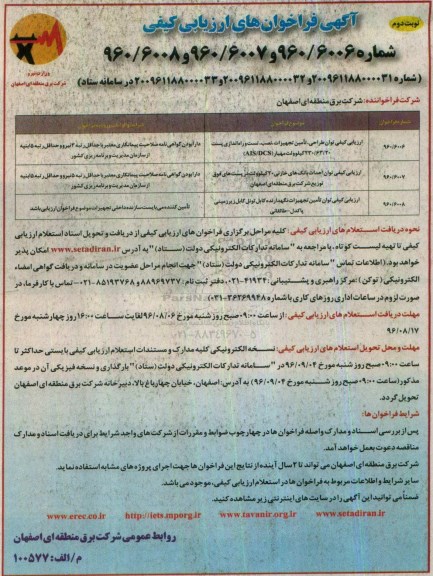 نوبت دوم
آگهی فراخوان های ارزیابی کیفی
شماره ۹۶۰/۶۰۰۶ و ۹۶۰/۶۰۰۷ و ۹۶۰/۶۰۰۸
(شماره ۲۰۰۹۶۱۱۸۸۰۰۰۰۳۱ و ۲۰۰۹۶۱۱۸۸۰۰۰۰۳۲ و ۲۰۰۹۶۱۱۸۸۰۰۰۰۳۳ در سامانه ستاد)
وزارت نیرو
شرکت برق منطقه ای اصفهان
شرکت فراخواننده: شرکت برق منطقه ای اصفهان
۹۶۰/۶۰۰۶
ارزیابی کیفی توان طراحی، تأمین تجهیزات، نصب، تست و راه اندازی پست
۲۳۰/۶۳/۲۰ کیلوولت مهیار (AIS/DCS)
دارا بودن گواهی نامه صلاحیت پیمانکاری معتبر با حداقر رتبه ۲ نیرو و حداقل رتبه ۵ ابنیه
از سازمان مدیریت و برنامه ریزی کشور
۹۶۰/۶۰۰۷
ارزیابی کیفی توان احداث بانک های خازنی ۲۰ کیلوولت در پست های فوق
توزیع شرکت برق منطقه ای اصفهان
دارا بودن گواهی نامه صلاحیت پیمانکاری معتبر با حداقل رتبه ۵ نیرو و حداقل رتبه ۵ ابنیه
از سازمان مدیریت و برنامه ریزی کشور
۹۶۰/۶۰۰۸
ارزیابی کیفی توان تأمین تجهیزات نگهدارنده کابل تونل کابل زیرزمینی
تأمین کننده می بایست سازنده داخلی تجهیزات موضوع فراخوان ارزیابی باشد.
نحوه دریافت استعلام های ارزیابی کیفی: کلیه مراحل برگزاری فراخوان های ارزیابی کیفی از دریافت و تحویل اسناد استعلام ارزیابی
کیفی تا تهیه لیست کوتاه، با مراجعه به "سامانه تدارکات الکترونیکی دولت (ستاد)" به آدرس www.setadiran.ir امکان پذیر
خواهد بود. (اطلاعات تماس "سامانه تدارکات الکترونیکی دولت (ستاد)" جهت انجام مراحل عضویت در سامانه و دریافت گواهی امضاء
الکترونیکی (توکن): مرکز راهبری و پشتیبانی: ۴۱۹۳۴-۰۲۱، دفتر ثبت نام: ۸۸۹۶۹۷۳۷ و ۸۵۱۹۳۷۶۸-۰۲۱-تماس با کارفرما، در
صورت لزوم در ساعات اداری روزهای کاری با شماره ۳۶۲۶۹۹۴۸-۰۳۱
مهلت دریافت استعلام های ارزیابی کیفی: از ساعت ۰۹:۰۰ صبح روز شنبه مورخ ۹۶/۰۸/۰۶ لغایت ساعت ۱۶:۰۰ روز چهارشنبه مورخ
۹۶/۰۸/۱۷
مهلت و محل تحویل استعلام های ارزیابی کیفی: نسخه الکترونیکی کلیه مدارک و مستندات استعلام ارزیابی کیفی بایستی حداکثر تا
ساعت ۰۹:۰۰ صبح روز شنبه مورخ ۹۶/۰۹/۰۴ در "سامانه تدارکات الکترونیکی دولت (ستاد)" بارگذاری و نسخه فیزیکی آن در موعد
مذکور (ساعت ۰۹:۰۰ صبح روز شنبه مورخ ۹۶/۰۹/۰۴) به آدرس: اصفهان، خیابان چهارباغ بالا، دبیرخانه شرکت برق منطقه ای اصفهان
تحویل گردد.
شرایط فراخوان ها:
پس از بررسی اسناد و مدارک واصله فراخوان ها در چهارچوب ضوابط و مقررات از شرکت های واجد شرایط برای دریافت اسناد و مدارک
مناقصه دعوت بعمل خواهد آمد.
شرکت برق منطقه ای اصفهان می تواند تا ۲ سال آینده از نتایج این فراخوان ها جهت اجرای پروژه های مشابه استفاده نماید.
سایر شرایط و اطلاعات مربوط به فراخوان ها در استعلام ارزیابی کیفی، موجود می باشد.
ضمناً می توانید این آگهی را در سایت های اینترنتی زیر مشاهده کنید.
www.erec.co.ir http://iets.mporg.ir www.tavanir.org.ir www.setadiran.ir
روابط عمومی شرکت برق منطقه ای اصفهان
م/الف: ۱۰۰۵۷۷